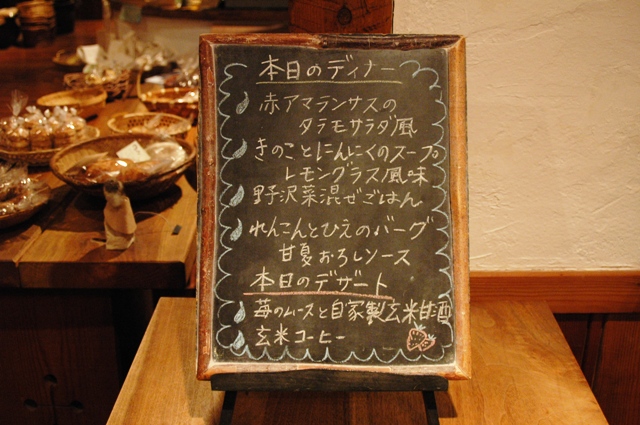 本日のディナー
赤アマランサスの
タラモサラダ風
きのことにんにくのスープ
レモングラス風味
野沢菜混ぜごはん
れんこんとひえのバーグ
甘夏おろしソース
本日のデザート
苺のムースと自家製玄米甘酒
玄米コーヒー